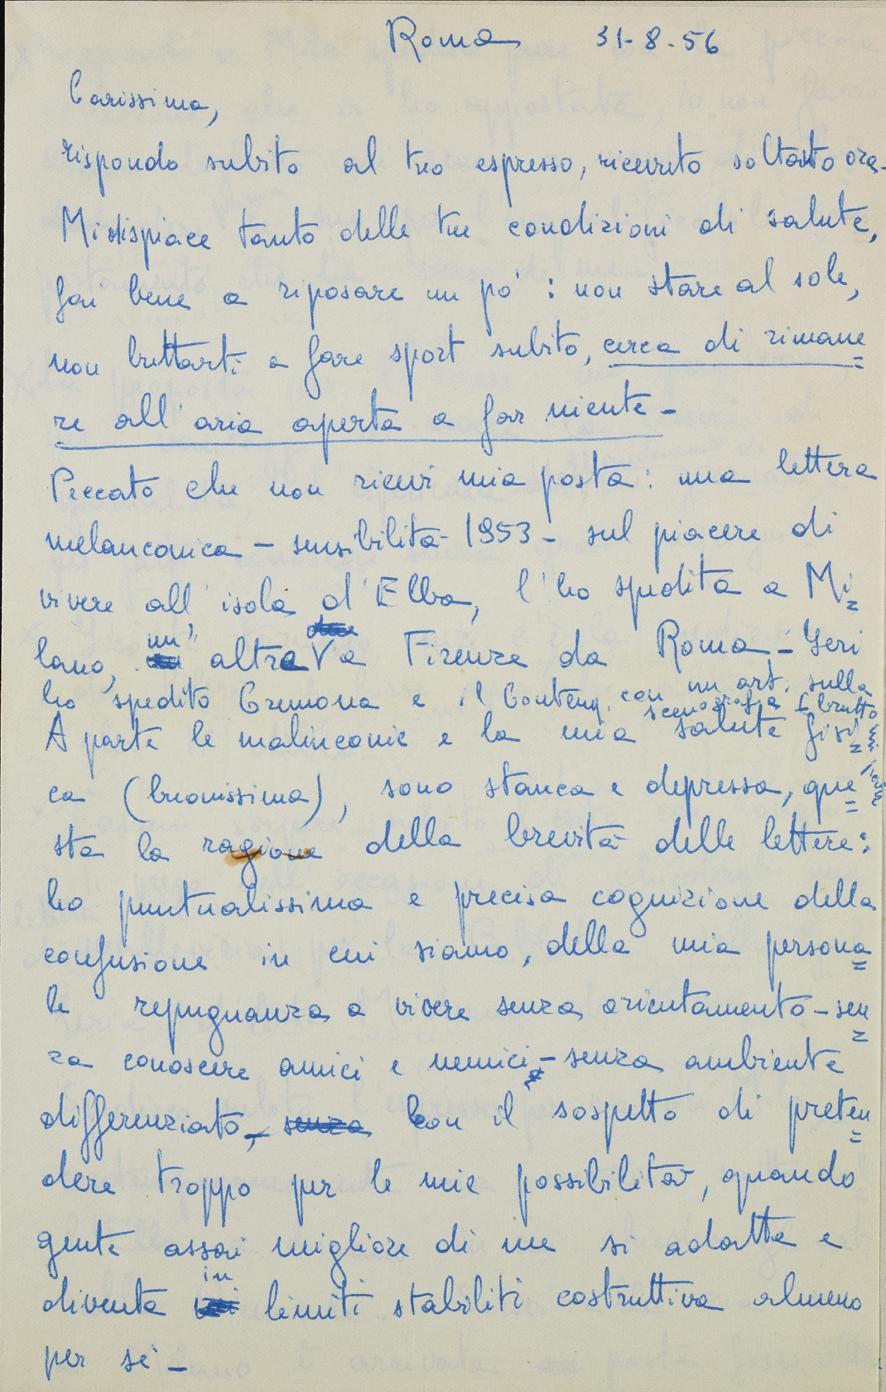 Roma 31-8-56
Carissima,
rispondo subito al tuo espresso, ricevuto soltanto ora-
Mi dispiace tanto delle tue condizioni di salute,
fai bene a riposare un po': non stare al sole,
non buttarti a fare sport subito, cerca di rimane=
re all'aria aperta a far niente-
Peccato che non ricevi mia posta: una lettera
melanconica - sensibilità 1953 - sul piacere di
vivere all'isola d'Elba, l'ho spedita a Mi=
lano, un'altra via Firenze da Roma - Ieri
ho spedito Cremona e il Contemp. con un art. sulla
scenografia
A parte le malinconie e la mia salute fisi=
ca (buonissima), sono stanca e depressa, que=
sta la ragione della brevità delle lettere:
ho puntualissima e precisa cognizione della
confusione in cui siamo, della mia persona=
le repugnanza a vivere senza orientamento - sen=
za conoscere amici e nemici - senza ambiente
differenziato - con il sospetto di preten=
dere troppo per le mie possibilità, quando
gente assai migliore di me si adatta e
diventa in limiti stabiliti costruttiva almeno
per sé -